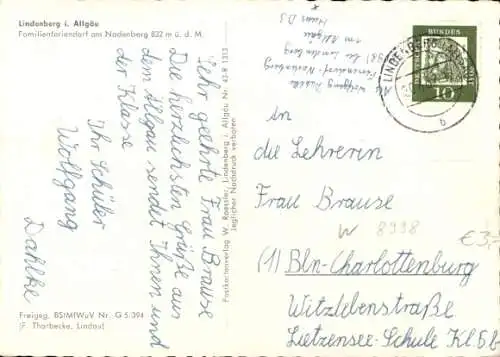 Lindenberg i. Allgäu
Familienferiendorf am Nadenberg 832 m ü. d. M.
Sehr geehrte Frau Brause
Die herzlichsten Grüße aus
dem Allgäu sendet Ihnen und
der Klasse
Ihr Schüler
Wolfgang
Dahlke
Freigeg. BStMfWuV Nr. G 5/394
(F. Thorbecke, Lindau)
Postkartenverlag W. Roessler, Lindenberg i. Allgäu Nr. 419 B 1313
Jeglicher Nachdruck verboten
Wolfgang Dahlke
Feriendorf-Nadenberg
Lindenberg
im Allgäu
Haus D 3
LINDENBERG
b
DEUTSCHE BUNDESPOST
10
An
die Lehrerin
Frau Brause
W 8998
(1) Bln-Charlottenburg
Witzlebenstraße
Lietzensee-Schule Kl 6 b